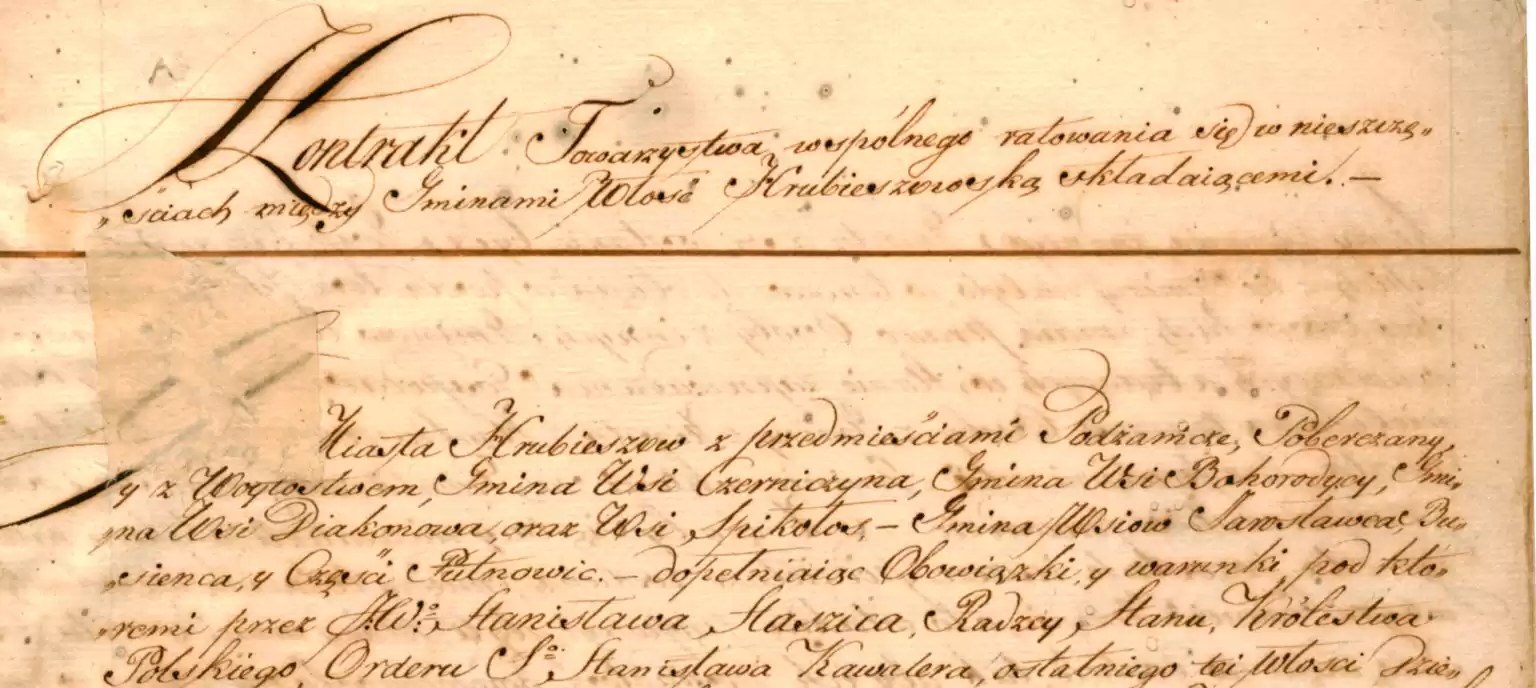 Kontrakt Towarzystwa wspólnego ratowania się w nieszczę„
„ściach między Gminami Włość Hrubieszowską składaiącemi. —
Miasta Hrubieszow z przedmieściami Podzamcze, Pobereżany,
y z Woytostwem, Gmina Wsi Czerniczyna, Gmina Wsi Bohorodycy, Gmi„
„na Wsi Diakonowa, oraz Wsi Spikołos, — Gmina Wsiow Jarosławca, Bu„
„sienca, y Części Putnowic. — dopełniaiąc Obowiązki, y warunki, pod któ„
„remi przez JWo. Stanisława Staszica, Radzcy Stanu, Królestwa
Polskiego, Orderu So. Stanisława Kawalera, ostatniego tei Włości dzie„